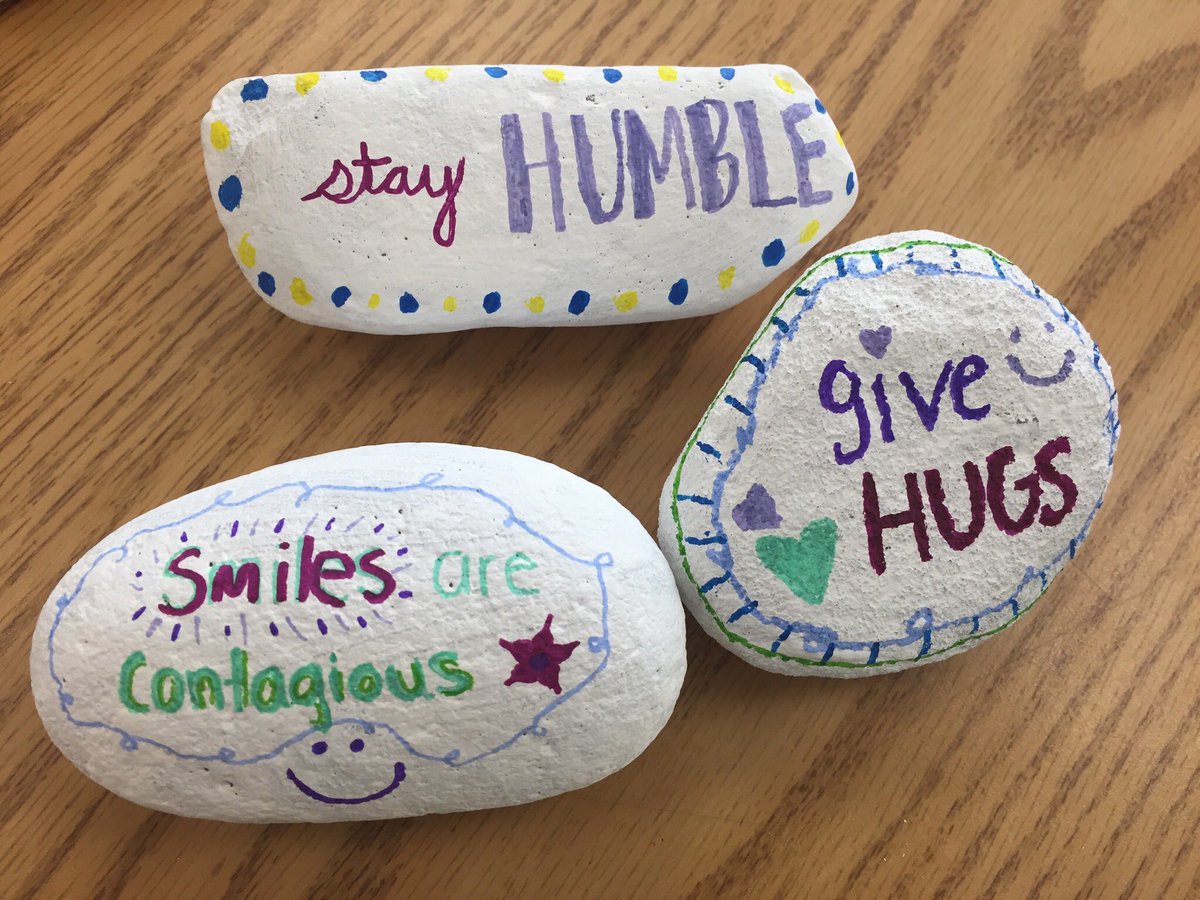 stay HUMBLE
give
HUGS
Smiles are
Contagious